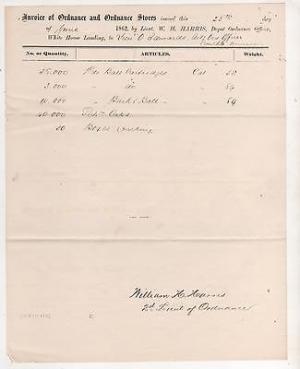 Invoice of Ordnance and Ordnance Stores issued this 25th day
of June 1862, by Lieut. W. H. HARRIS, Depot Ordnance Officer,
White House Landing, to
No. or Quantity. ARTICLES. Weight.
25.000 Ball Cartridges Cal 58
3.000 " do " 54
10.000 " Buck & Ball " 69
Caps
50 Boxes
William H. Harris
2d Lieut of Ordnance